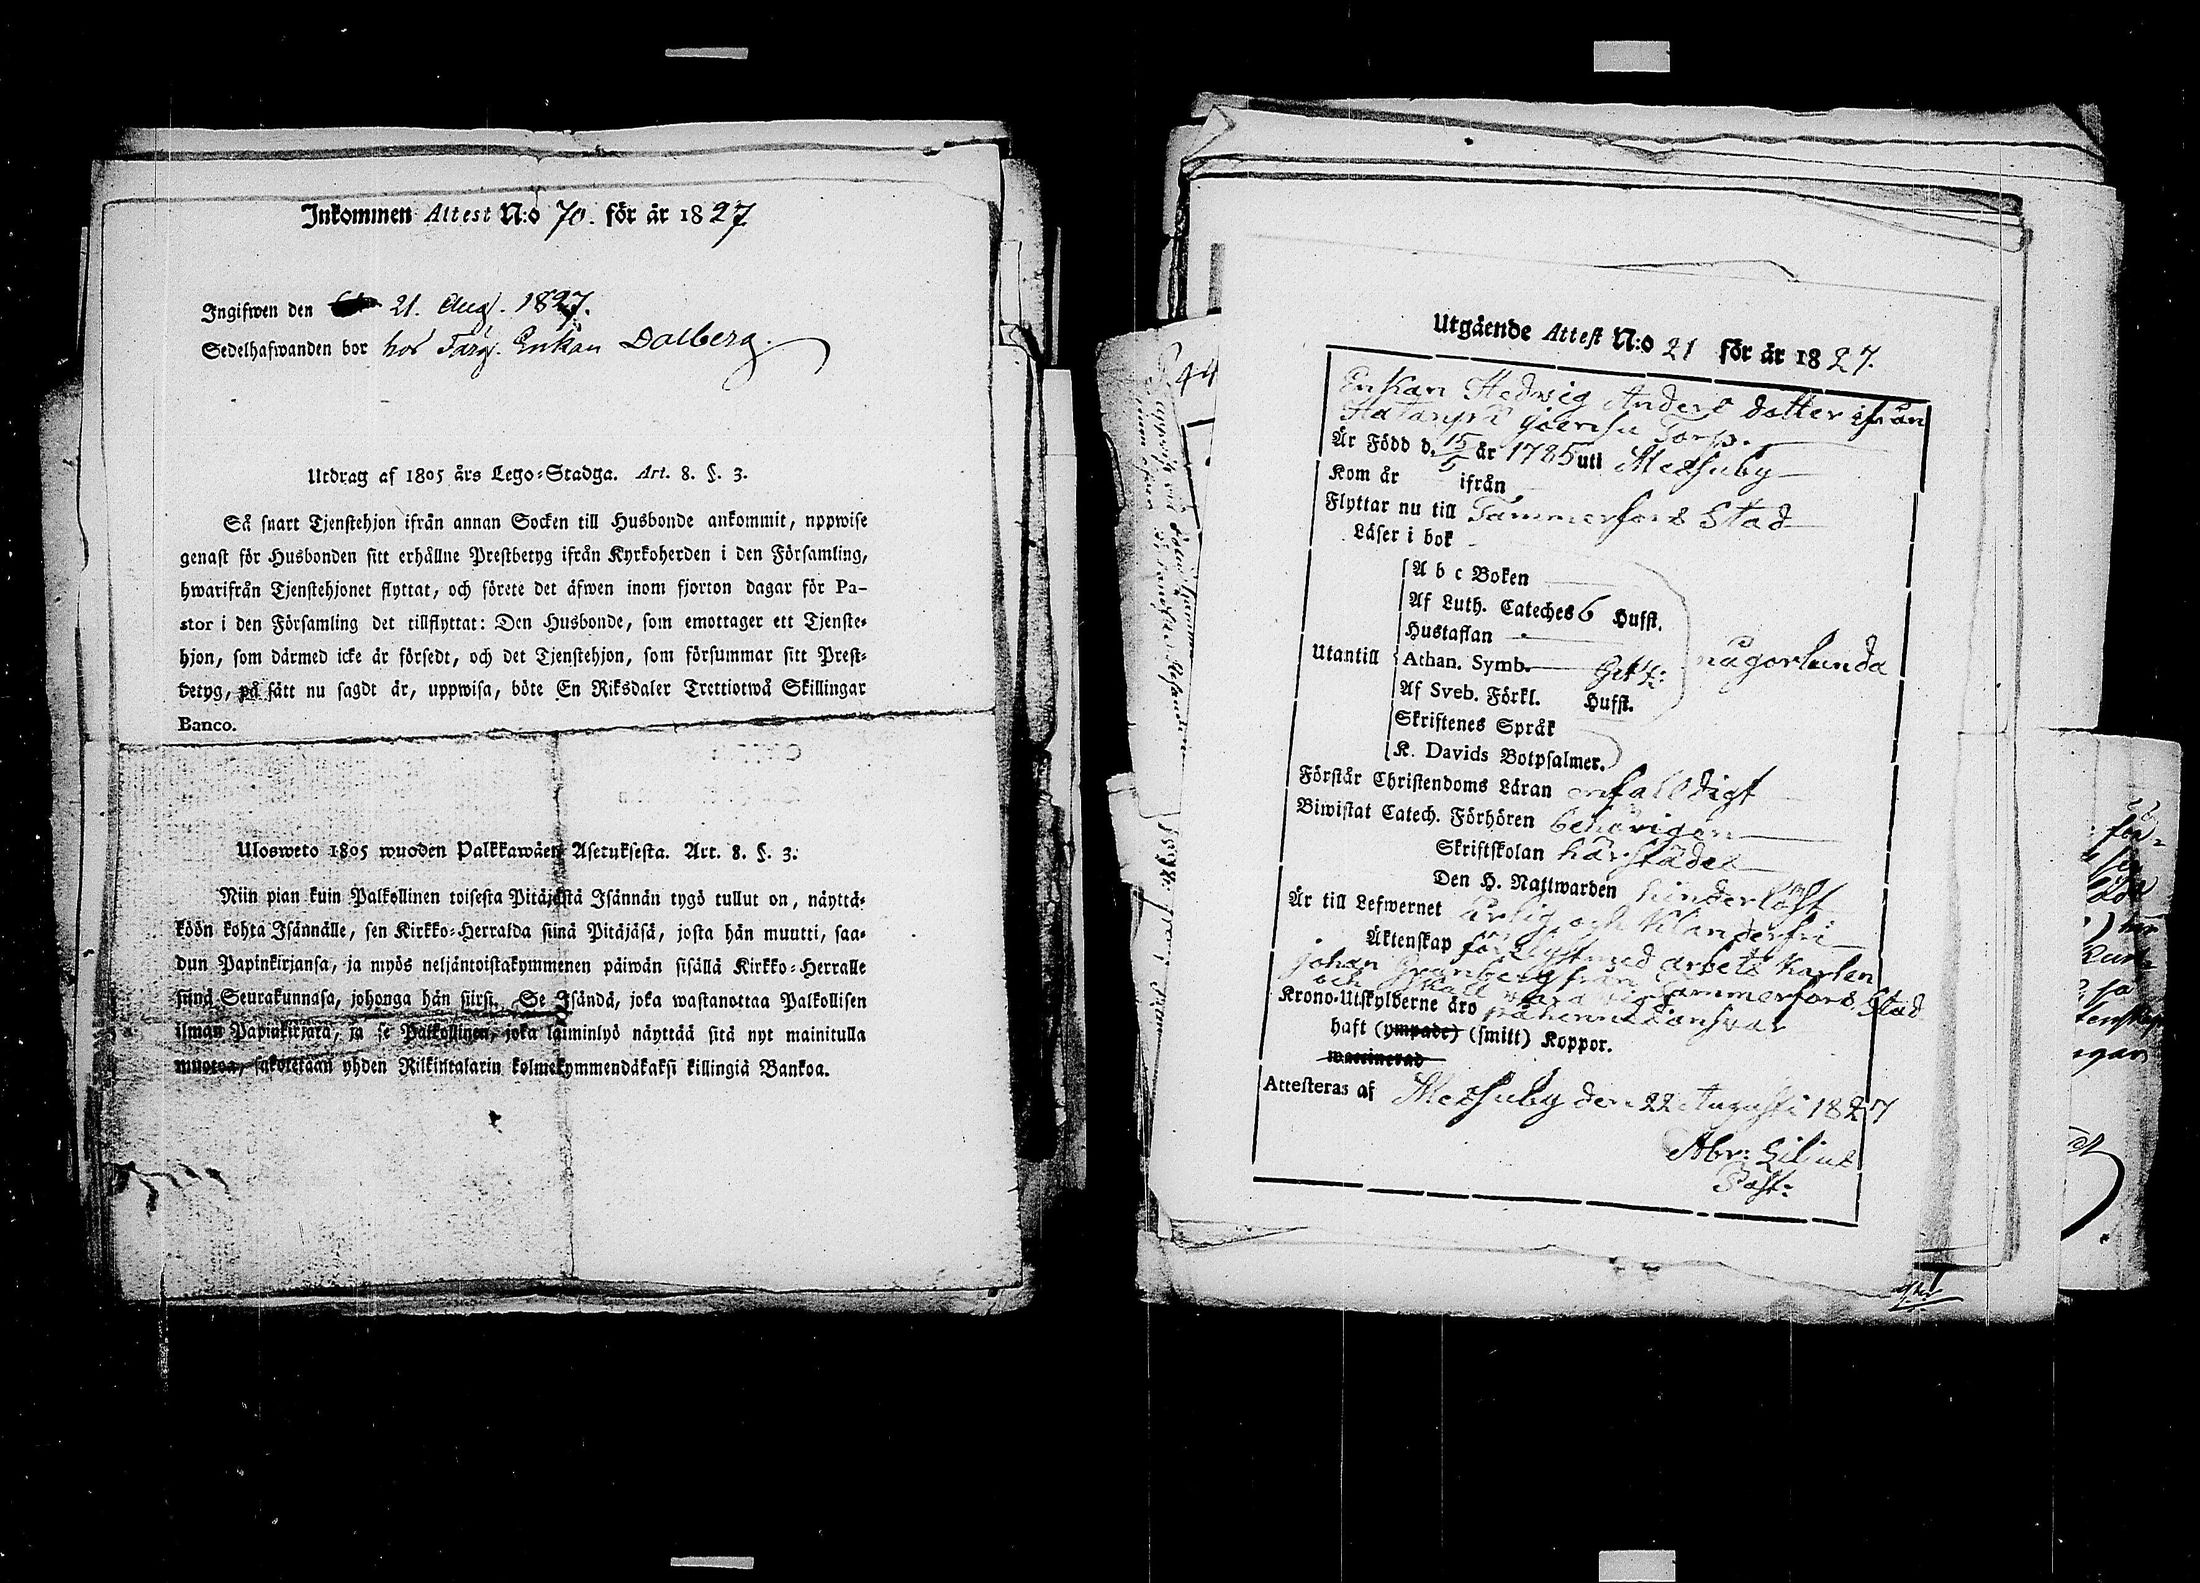 Inkommen Attest N:o 70. för år 1827
Ingifwen den 21. Aug. 1827.
Sedelhafwanden bor hos Färg. Enkan Dalberg.
Utdrag af 1805 års Lego-Stadga. Art. 8. §. 3.
Så snart Tjenstehjon ifrån annan Socken till Husbonde ankommit, uppwise
genast för Husbonden sitt erhållne Prestbetyg ifrån Kyrkoherden i den Församling,
hwarifrån Tjenstehjonet flyttat, och förete det äfwen inom fjorton dagar för Pa-
stor i den Församling det tillflyttat: Den Husbonde, som emottager ett Tjenste-
hjon, som därmed icke är försedt, och det Tjenstehjon, som försummar sitt Prest-
betyg, på sätt nu sagdt är, uppwisa, böte En Riksdaler Trettiotwå Skillingar
Banco.
Ulosweto 1805 wuoden Palkkawäen Asetuksesta. Art. 8. §. 3.
Niin pian kuin Palkollinen toisesta Pitäjästä Isännän tygö tullut on, näyttä-
köön kohta Isännälle, sen Kirkko-Herralda siinä Pitäjäsä, josta hän muutti, saa-
dun Papinkirjansa, ja myös neljäntoistakymmenen päiwän sisällä Kirkko-Herralle
siinä Seurakunnasa, johonga hän siirsi. Se Isändä, joka wastanottaa Palkollisen
ilman Papinkirjata, ja se Palkollinen, joka laiminlyö näyttää sitä nyt mainitulla
muotoa, sakotetaan yhden Riikintalarin kolmekymmendäkaksi killingiä Bankoa.
Utgående Attest N:o 21 för år 1827.
Enkan Hedwig Anders dotter ifrån
Torp.
Är Född d. 15/5 år 1785 uti Messuby
Kom år ifrån
Flyttar nu till Tammerfors Stad
Läser i bok
A b c Boken
Af Luth. Cateches 6 Hufst.
Hustaflan
Utantill Athan. Symb. någorlunda
Af Sveb. Förkl. Hufst.
Skriftenes Språk
K. Davids Botpsalmer.
Förstår Christendoms Läran enfalldigt
Biwistat Catech. Förhören behörigen
Skriftskolan härstädes
Den H. Nattwarden
Är till Lefwernet Ärlig och Klanderfri
Äktenskap för Lyst med arbets Karlen
Johan Granberg från Tammerfors Stad
och skall wara
Krono-Utskylderne äro
haft (ympade) (smitt) Koppor.
waccinerad
Attesteras af Messuby den 22 Augusti 1827
Abr: Lilius
Past: